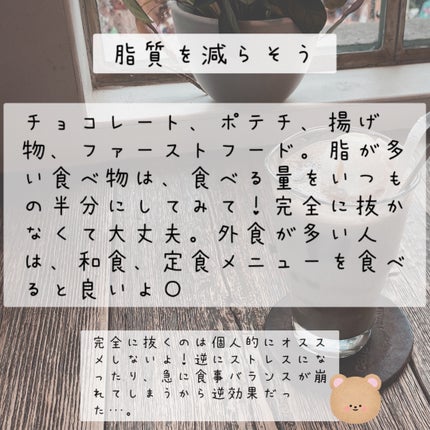 脂質を減らそう
チョコレート、ポテチ、揚げ
物、ファーストフード。脂が多
い食べ物は、食べる量をいつも
の半分にしてみて！完全に抜か
なくて大丈夫。外食が多い人
は、和食、定食メニューを食べ
ると良いよ〇
完全に抜くのは個人的にオスス
メしないよ！逆にストレスにな
ったり、急に食事バランスが崩
れてしまうから逆効果だっ
た…。